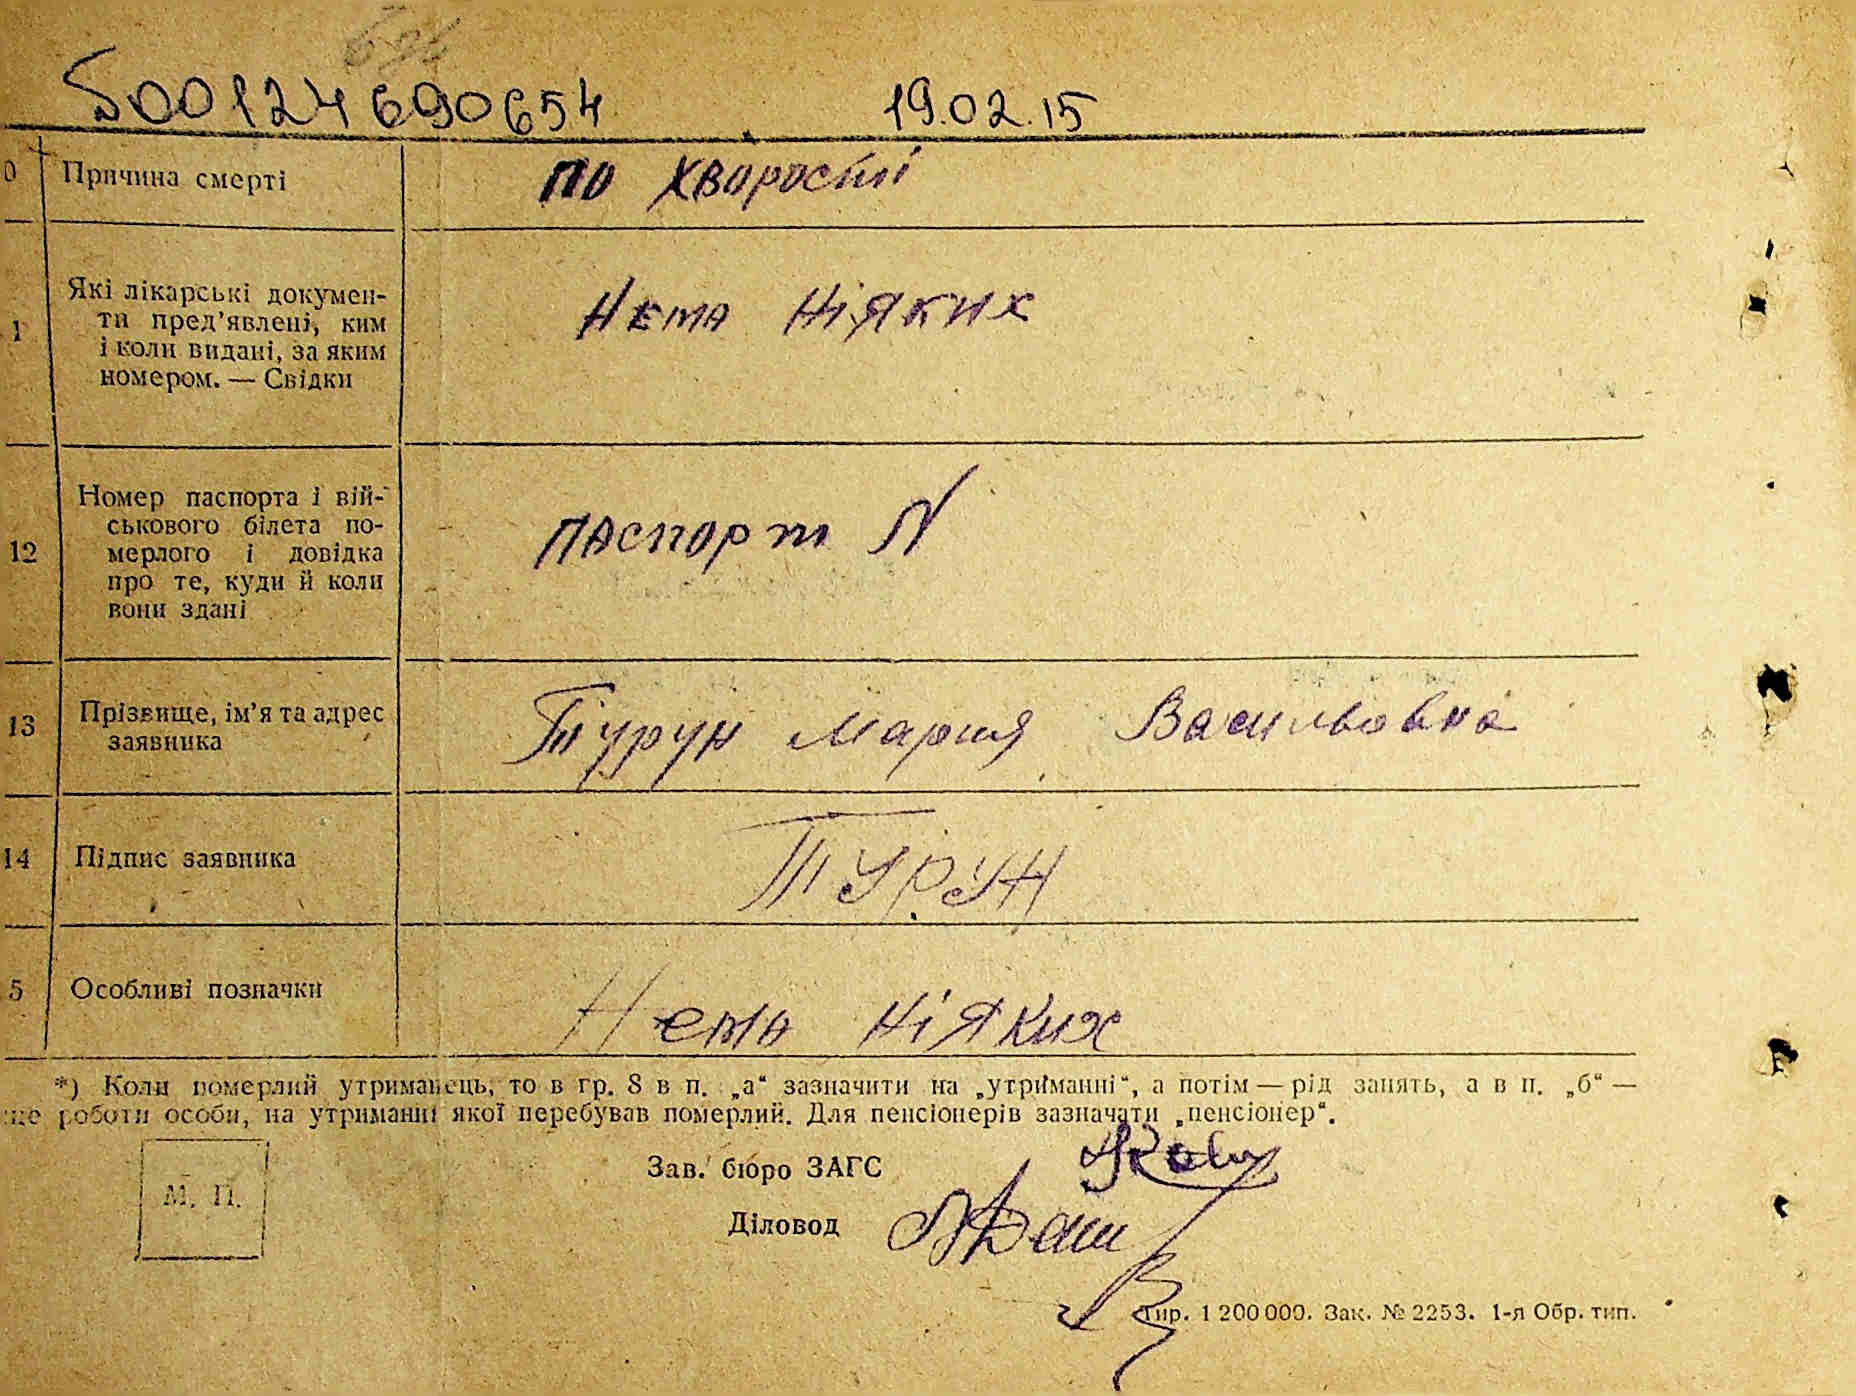 S00124690654 19.02.15
0 Причина смерті по хворостіі
1 Які лікарські докумен-
ти пред'явлені, ким
і коли видані, за яким
номером. — Свідки
Нема Ніяких
12 Номер паспорта і вій-
ськового білета по-
мерлого і довідка
про те, куди й коли
вони здані
паспорт N
13 Прізвище, ім'я та адрес
заявника
Турун Мария Васильовна
14 Підпис заявника Турун
5 Особливі позначки Нема ніяких
*) Коли померлий утриманець, то в гр. 8 в п. „а“ зазначити на „утриманні“, а потім — рід занять, а в п. „б“ —
це роботи особи, на утриманні якої перебував померлий. Для пенсіонерів зазначати „пенсіонер“.
М. П.
Зав. бюро ЗАГС
Діловод
Тир. 1 200 000. Зак. № 2253. 1-я Обр. тип.